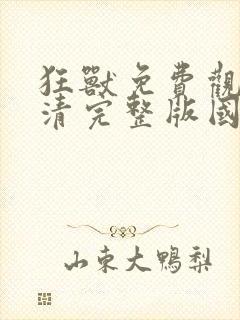 狂獸免費觀
清完整版國
山東大鴨梨